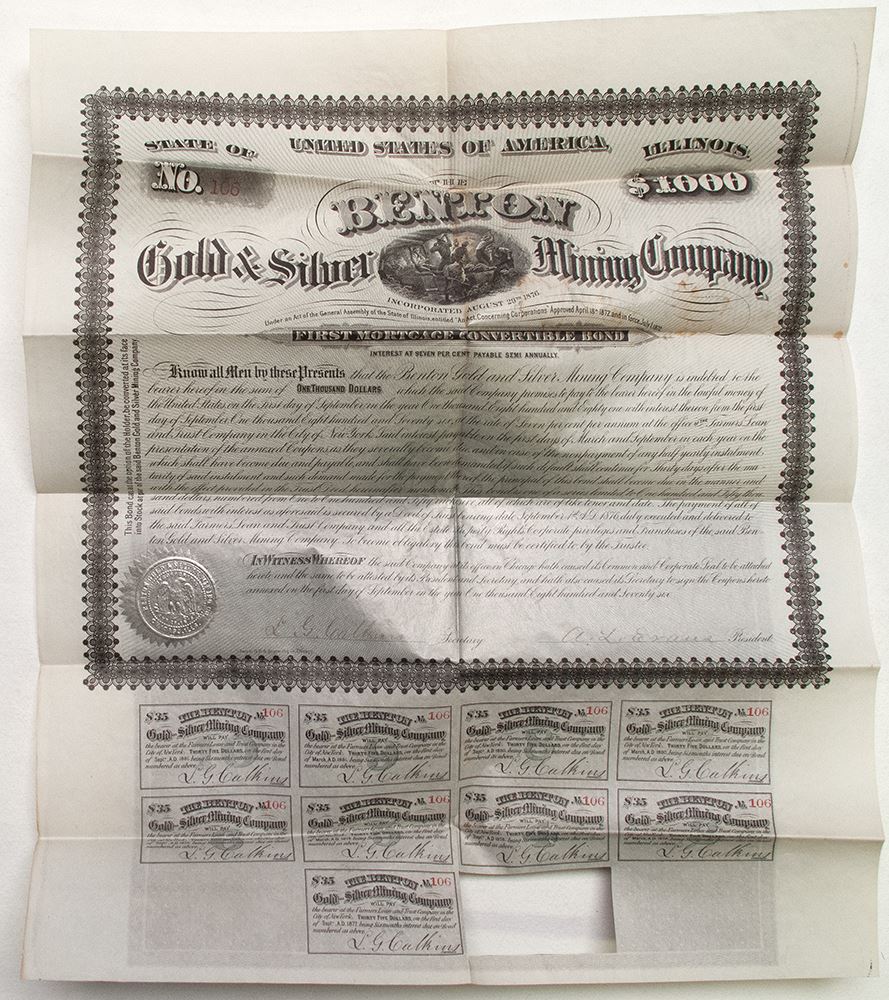 STATE OF UNITED STATES OF AMERICA, ILLINOIS.
No. 106 $1000
THE
BENTON
Gold & Silver Mining Company
INCORPORATED AUGUST 29TH 1876.
Under an Act of the General Assembly of the State of Illinois, entitled "An Act Concerning Corporations" Approved April 18th 1872, and in force July 1, 1872.
FIRST MORTGAGE CONVERTIBLE BOND
INTEREST AT SEVEN PER CENT PAYABLE SEMI ANNUALLY.
This Bond can at the option of the Holder, be converted at its face
into Stock of the said Benton Gold and Silver Mining Company
Know all Men by these Presents that the Benton Gold and Silver Mining Company is indebted to the
bearer hereof in the sum of ONE THOUSAND DOLLARS which the said Company promises to pay to the bearer hereof in the lawful money of
the United States on the first day of September in the year One thousand Eight hundred and Eighty one with interest thereon from the first
day of September One thousand Eight hundred and Seventy six at the rate of Seven per cent per annum at the office of the Farmers Loan
and Trust Company in the City of New York. Said interest payable on the first days of March and September in each year on the
presentation of the annexed Coupons as they severally become due, and in case of the non payment of any half yearly instalment,
which shall have become due and payable, and shall have been demanded, if such default shall continue for thirty days after the ma-
turity of said instalment and such demand made for the payment thereof the principal of this bond shall become due in the manner and
with the effect provided in the Trust Deed hereinafter mentioned. limited to One hundred and Fifty thou-
sand dollars numbered from One to One hundred and all of which are of like tenor and date. The payment of all of
said bonds with interest as aforesaid is secured by a Deed of Trust bearing date September 1st A.D. 1876 duly executed and delivered to
the said Farmers Loan and Trust Company and all the Estate Property Rights Corporate privileges and Franchises of the said Ben-
ton Gold and Silver Mining Company. To become obligatory this bond must be certified to by the Trustee.
IN WITNESS WHEREOF the said Company hath caused its Common and Corporate Seal to be attached
hereto and the same to be attested by its President and Secretary, and hath also caused its Secretary to sign the Coupons hereto
annexed on the first day of September in the year One thousand Eight hundred and Seventy six.
L. G. Calkins Secretary A. L. Evans President
$35 THE BENTON No. 106
Gold and Silver Mining Company
WILL PAY
the bearer at the Farmers Loan and Trust Company in the
City of New York. THIRTY FIVE DOLLARS, on the first day
of Sept. A.D. 1881, being Six months interest due on Bond
numbered as above.
L. G. Calkins
$35 THE BENTON No. 106
Gold and Silver Mining Company
WILL PAY
the bearer at the Farmers Loan and Trust Company in the
City of New York. THIRTY FIVE DOLLARS, on the first day
of March, A.D. 1881, being Six months interest due on Bond
numbered as above.
L. G. Calkins
$35 THE BENTON No. 106
Gold and Silver Mining Company
WILL PAY
the bearer at the Farmers Loan and Trust Company in the
City of New York. THIRTY FIVE DOLLARS, on the first day
being Six months interest due on Bond
numbered as above.
L. G. Calkins
$35 THE BENTON No. 106
Gold and Silver Mining Company
WILL PAY
the bearer at the Farmers Loan and Trust Company in the
City of New York. THIRTY FIVE DOLLARS, on the first day
being Six months interest due on Bond
numbered as above.
L. G. Calkins
$35 THE BENTON No. 106
Gold and Silver Mining Company
WILL PAY
the bearer at the Farmers Loan and Trust Company in the
City of New York. THIRTY FIVE DOLLARS, on the first day
being Six months interest due on Bond
numbered as above.
L. G. Calkins
$35 THE BENTON No. 106
Gold and Silver Mining Company
WILL PAY
the bearer at the Farmers Loan and Trust Company in the
City of New York. THIRTY FIVE DOLLARS, on the first day
being Six months interest due on Bond
numbered as above.
L. G. Calkins
$35 THE BENTON No. 106
Gold and Silver Mining Company
WILL PAY
the bearer at the Farmers Loan and Trust Company in the
City of New York. THIRTY FIVE DOLLARS, on the first day
being Six months interest due on Bond
numbered as above.
L. G. Calkins
$35 THE BENTON No. 106
Gold and Silver Mining Company
WILL PAY
the bearer at the Farmers Loan and Trust Company in the
City of New York. THIRTY FIVE DOLLARS, on the first day
being Six months interest due on Bond
numbered as above.
L. G. Calkins
$35 THE BENTON No. 106
Gold and Silver Mining Company
WILL PAY
the bearer at the Farmers Loan and Trust Company in the
City of New York. THIRTY FIVE DOLLARS, on the first day
of Sept. A.D. 1877, being Six months interest due on Bond
numbered as above.
L. G. Calkins